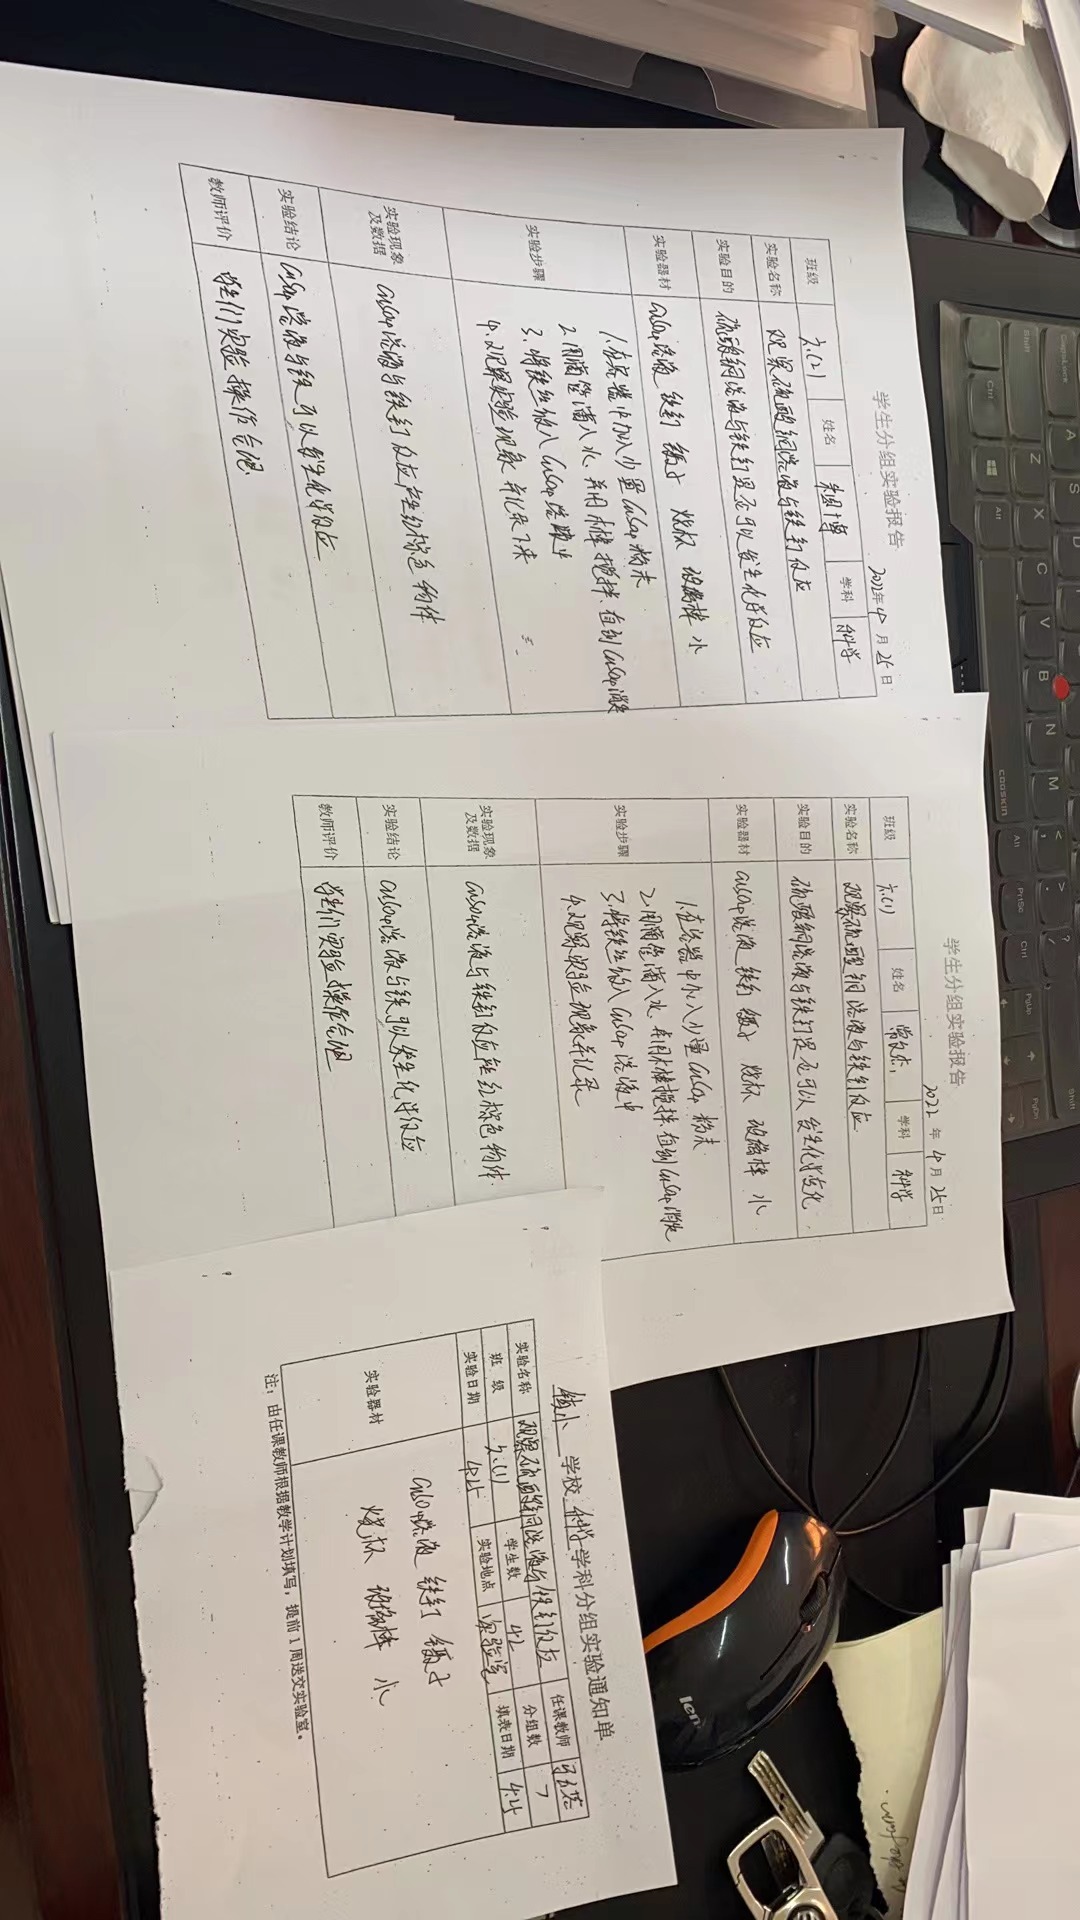 学生分组实验报告
2022年4月25日
班级 六(2) 姓名 学科 科学
实验名称 观察硫酸铜溶液与铁钉反应
实验目的 硫酸铜溶液与铁钉是否可以发生化学反应
实验器材 CuSO4溶液 铁钉 镊子 烧杯 玻璃棒 水
实验步骤
1.在容器中加入少量CuSO4粉末
2.用滴管滴入水,并用木棒搅拌,值到CuSO4消失
3.将铁丝放入CuSO4溶液中
4.观察实验现象并记录下来
实验现象及数据 CuSO4溶液与铁钉反应产生红棕色物体
实验结论 CuSO4溶液与铁可以发生化学反应
教师评价 学生们实验操作合理
学生分组实验报告
2022年4月25日
班级 六(1) 姓名 学科 科学
实验名称 观察硫酸铜溶液与铁钉反应
实验目的 硫酸铜溶液与铁钉是否可以发生化学变化
实验器材 CuSO4溶液 铁钉 镊子 烧杯 玻璃棒 水
实验步骤
1.在容器中加入少量CuSO4粉末
2.用滴管滴入水,并用木棒搅拌,值到CuSO4消失
3.将铁丝放入CuSO4溶液中
4.观察实验现象并记录
实验现象及数据 CuSO4溶液与铁钉反应产生红棕色物体
实验结论 CuSO4溶液与铁可以发生化学反应
教师评价 学生们实验操作合理
镇小 学校 科学 学科分组实验通知单
实验名称 观察硫酸铜溶液与铁钉反应 任课教师
班级 六(1) 学生数 42 分组数 7
实验日期 4.25 实验地点 实验室 填表日期 4.25
实验器材
CuSO4溶液 铁钉 镊子
烧杯 玻璃棒 水
注:由任课教师根据教学计划填写,提前1周送交实验室。
CapsLock
A
S
Shift
Z
X
C
V
B
N
M
Ctrl
Alt
COOSKIN
Alt
PrtSc
Ctrl
PgUp
PgDn
Shift
len